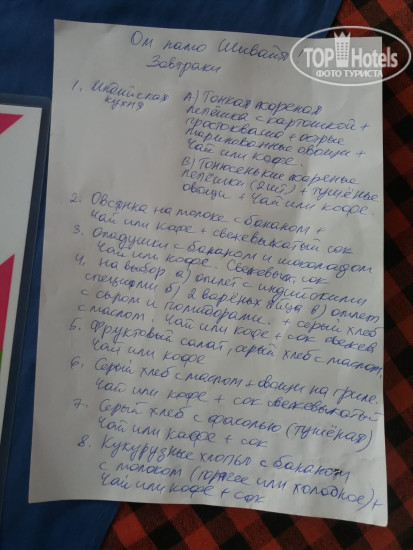 TOP Hotels
ФОТО ТУРИСТА
Ом намо Шивайя
Завтраки
1. Индийская кухня
А) Тонкая жареная
лепёшка с картошкой +
простокваша + острые
маринованные овощи +
Чай или кофе.
В) Тонюсенькие жареные
лепёшки (2шт) + тушёные
овощи + Чай или кофе
2. Овсянка на молоке с бананом +
Чай или кофе + свежевыжатый сок
3. Оладушки с бананом и шоколадом
Чай или кофе. Свежевыж. сок
4. На выбор а) омлет с индийскими
специями б) 2 варёных яйца в) омлет
с сыром и помидорами. + серый хлеб
с маслом. Чай или кофе + сок свежев
5. Фруктовый салат, серый хлеб с маслом,
Чай или кофе
6. Серый хлеб с маслом + овощи на гриле.
Чай или кофе + сок свежевыжатый
7. Серый хлеб с фасолью (тушёная)
Чай или кофе + сок
8. Кукурузные хлопья с бананом
с молоком (горячее или холодное) +
Чай или кофе + сок